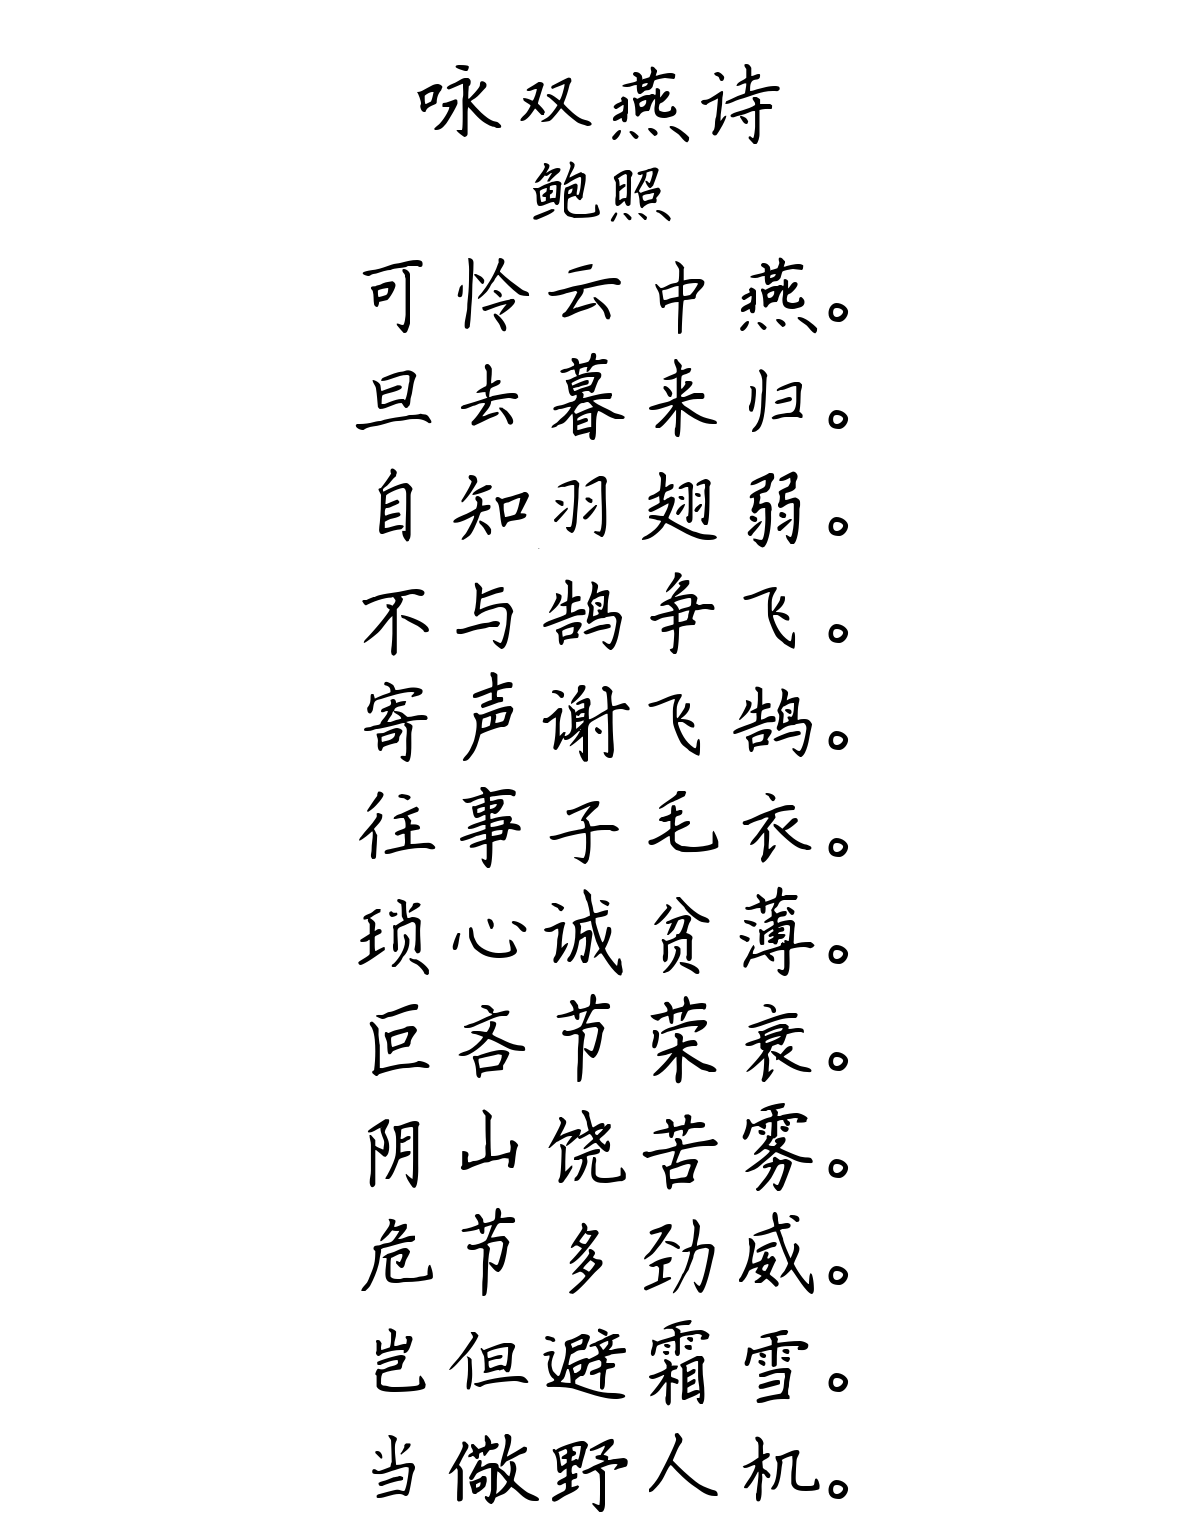 咏双燕诗
鲍照
可怜云中燕。
旦去暮来归。
自知羽翅弱。
不与鹄争飞。
寄声谢飞鹄。
往事子毛衣。
琐心诚贫薄。
叵吝节荣衰。
阴山饶苦雾。
危节多劲威。
岂但避霜雪。
当儆野人机。